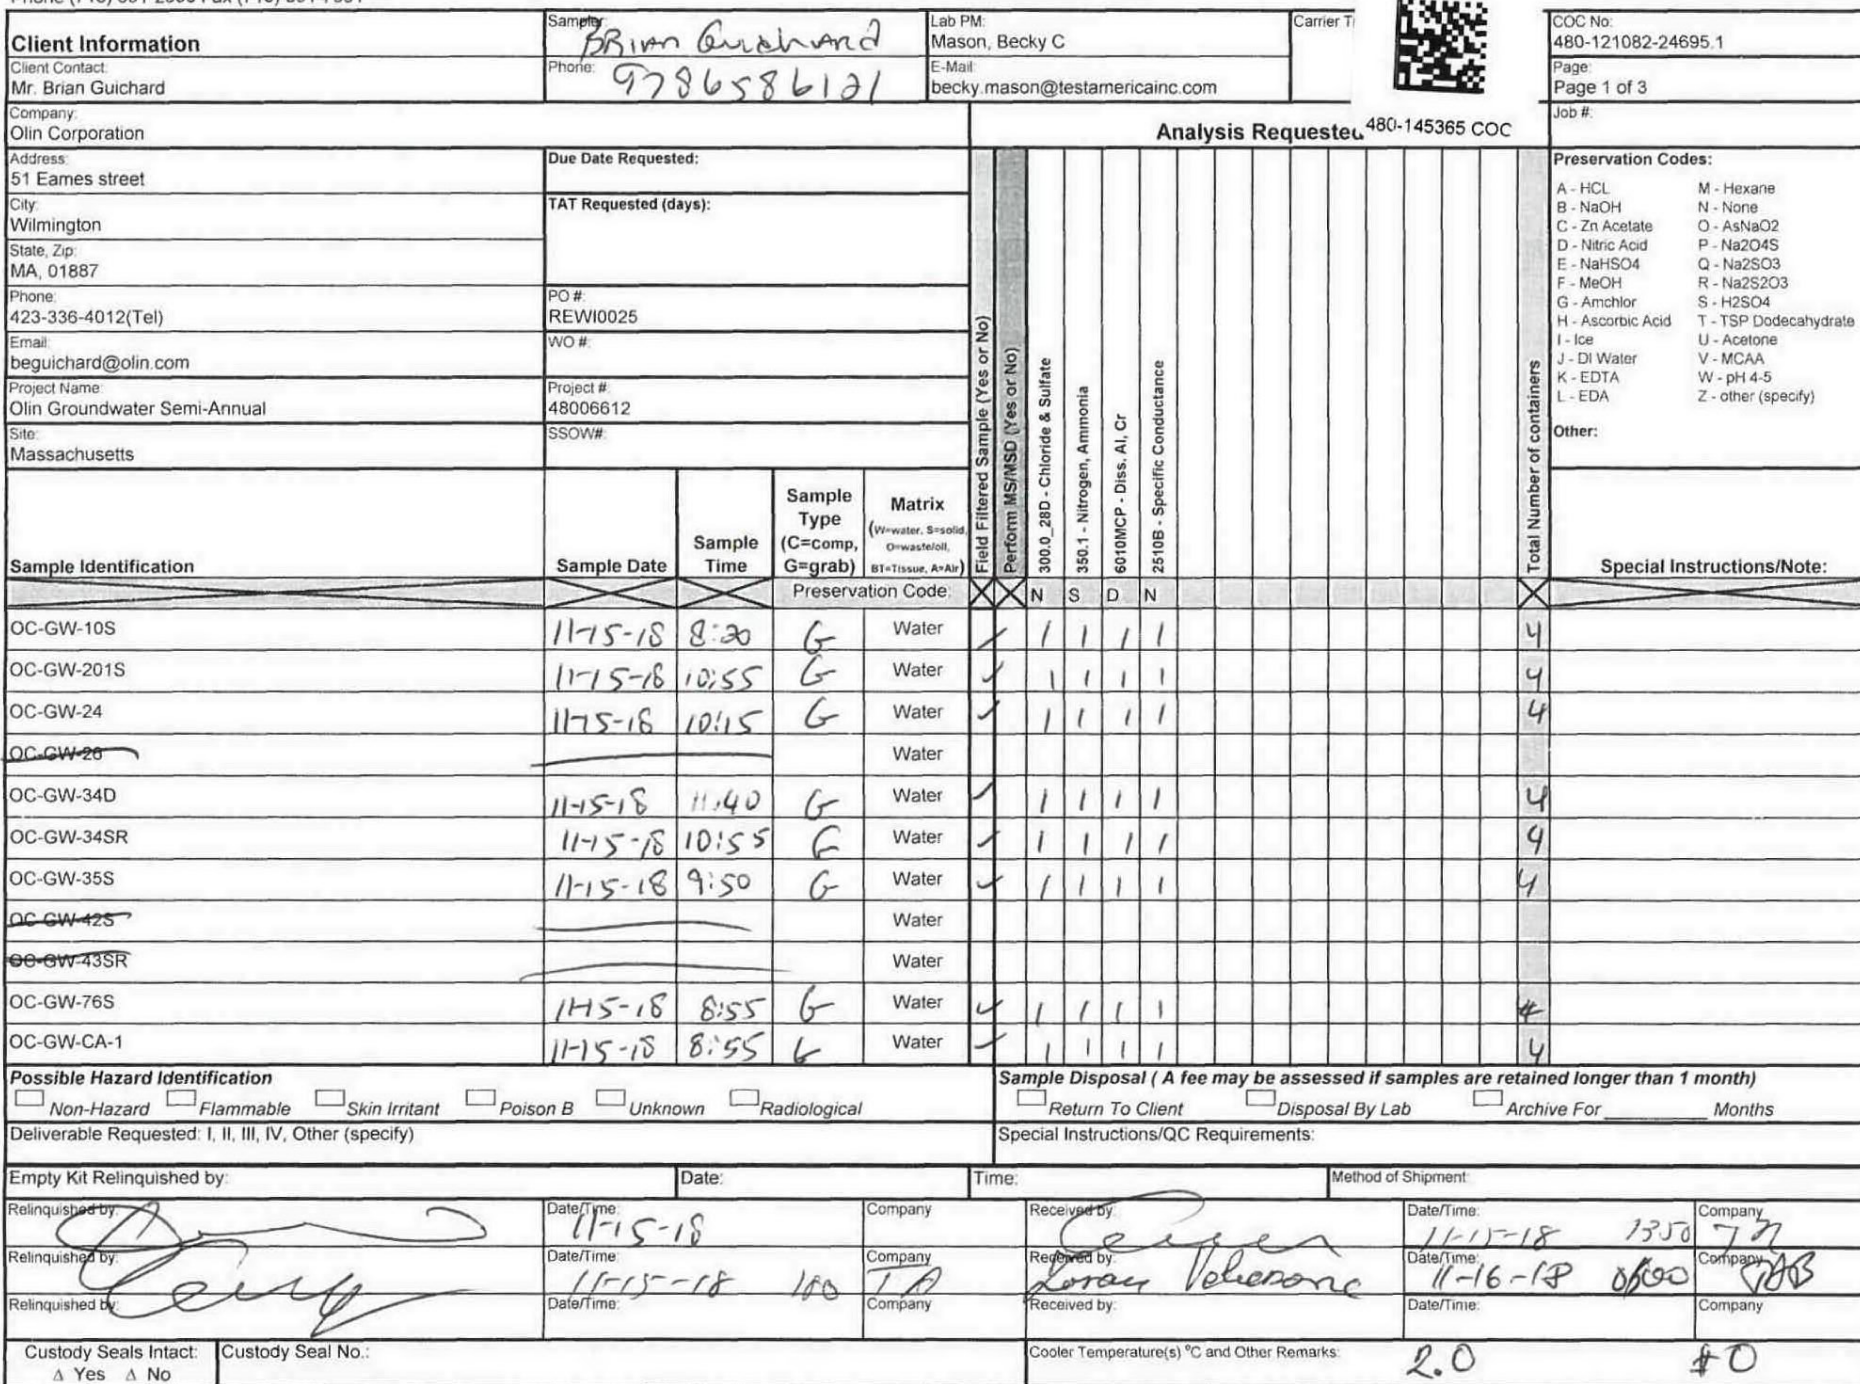 Client Information
Sampler: BRIAN Guichard
Lab PM: Mason, Becky C
COC No: 480-121082-24695.1
Client Contact: Mr. Brian Guichard
Phone: 9786586121
E-Mail: becky.mason@testamericainc.com
Page: Page 1 of 3
Company: Olin Corporation
Analysis Requested
480-145365 COC
Job #:
Address: 51 Eames street
Due Date Requested:
City: Wilmington
TAT Requested (days):
State, Zip: MA, 01887
Phone: 423-336-4012(Tel)
PO #: REWI0025
Email: beguichard@olin.com
WO #:
Project Name: Olin Groundwater Semi-Annual
Project #: 48006612
Site: Massachusetts
SSOW#:
Preservation Codes:
A - HCL M - Hexane
B - NaOH N - None
C - Zn Acetate O - AsNaO2
D - Nitric Acid P - Na2O4S
E - NaHSO4 Q - Na2SO3
F - MeOH R - Na2S2O3
G - Amchlor S - H2SO4
H - Ascorbic Acid T - TSP Dodecahydrate
I - Ice U - Acetone
J - DI Water V - MCAA
K - EDTA W - pH 4-5
L - EDA Z - other (specify)
Other:
Sample Identification
Sample Date
Sample Time
Sample Type (C=comp, G=grab)
Matrix (W=water, S=solid, O=waste/oil, BT=Tissue, A=Air)
Field Filtered Sample (Yes or No)
Perform MS/MSD (Yes or No)
300.0_28D - Chloride & Sulfate
350.1 - Nitrogen, Ammonia
6010MCP - Diss. Al, Cr
2510B - Specific Conductance
Total Number of containers
Special Instructions/Note:
Preservation Code: N S D N
OC-GW-10S 11-15-18 8:20 G Water 1 1 1 1 4
OC-GW-201S 11-15-18 10:55 G Water 1 1 1 1 4
OC-GW-24 11-15-18 10:15 G Water 1 1 1 1 4
OC-GW-26 Water
OC-GW-34D 11-15-18 11:40 G Water 1 1 1 1 4
OC-GW-34SR 11-15-18 10:55 G Water 1 1 1 1 4
OC-GW-35S 11-15-18 9:50 G Water 1 1 1 1 4
OC-GW-42S Water
OC-GW-43SR Water
OC-GW-76S 11-15-18 8:55 G Water 1 1 1 1 4
OC-GW-CA-1 11-15-18 8:55 G Water 1 1 1 1 4
Possible Hazard Identification
Non-Hazard Flammable Skin Irritant Poison B Unknown Radiological
Sample Disposal ( A fee may be assessed if samples are retained longer than 1 month)
Return To Client Disposal By Lab Archive For Months
Deliverable Requested: I, II, III, IV, Other (specify)
Special Instructions/QC Requirements:
Empty Kit Relinquished by: Date: Time: Method of Shipment:
Relinquished by: Date/Time: 11-15-18 Company Received by: Date/Time: 11-15-18 1350 Company
Relinquished by: Date/Time: 11-15-18 Company TA Received by: Date/Time: 11-16-18 Company
Relinquished by: Date/Time: Company Received by: Date/Time: Company
Custody Seals Intact: Δ Yes Δ No
Custody Seal No.:
Cooler Temperature(s) °C and Other Remarks: 2.0